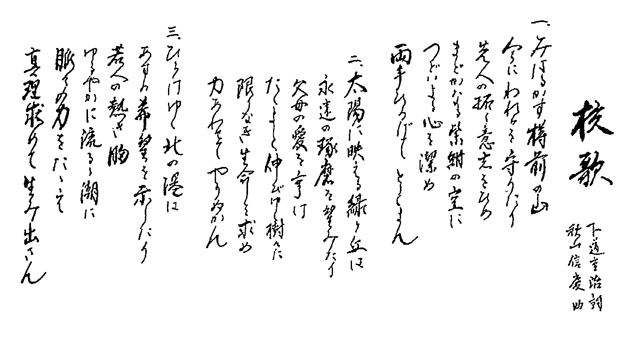 校歌
下道重治 詞
秋山信慶 助
一、みはるかす樽前の山
今にわれらを守りたり
先人の拓く意志をひめ
まどかなる紫紺の空に
つどいよる心を潔め
両手ひろげてとばん
二、太陽に映える緑ヶ丘は
永遠の琢磨を望みたり
父母の愛を享け
たくましく伸びゆく樹々だ
限りなき生命を求め
力あわせてやりぬかん
三、ひらけゆく北の港は
あすの希望を示したり
若人の熱き胸
ゆるやかに流るる潮に
脈々の力をたくして
真理求めて生み出さん